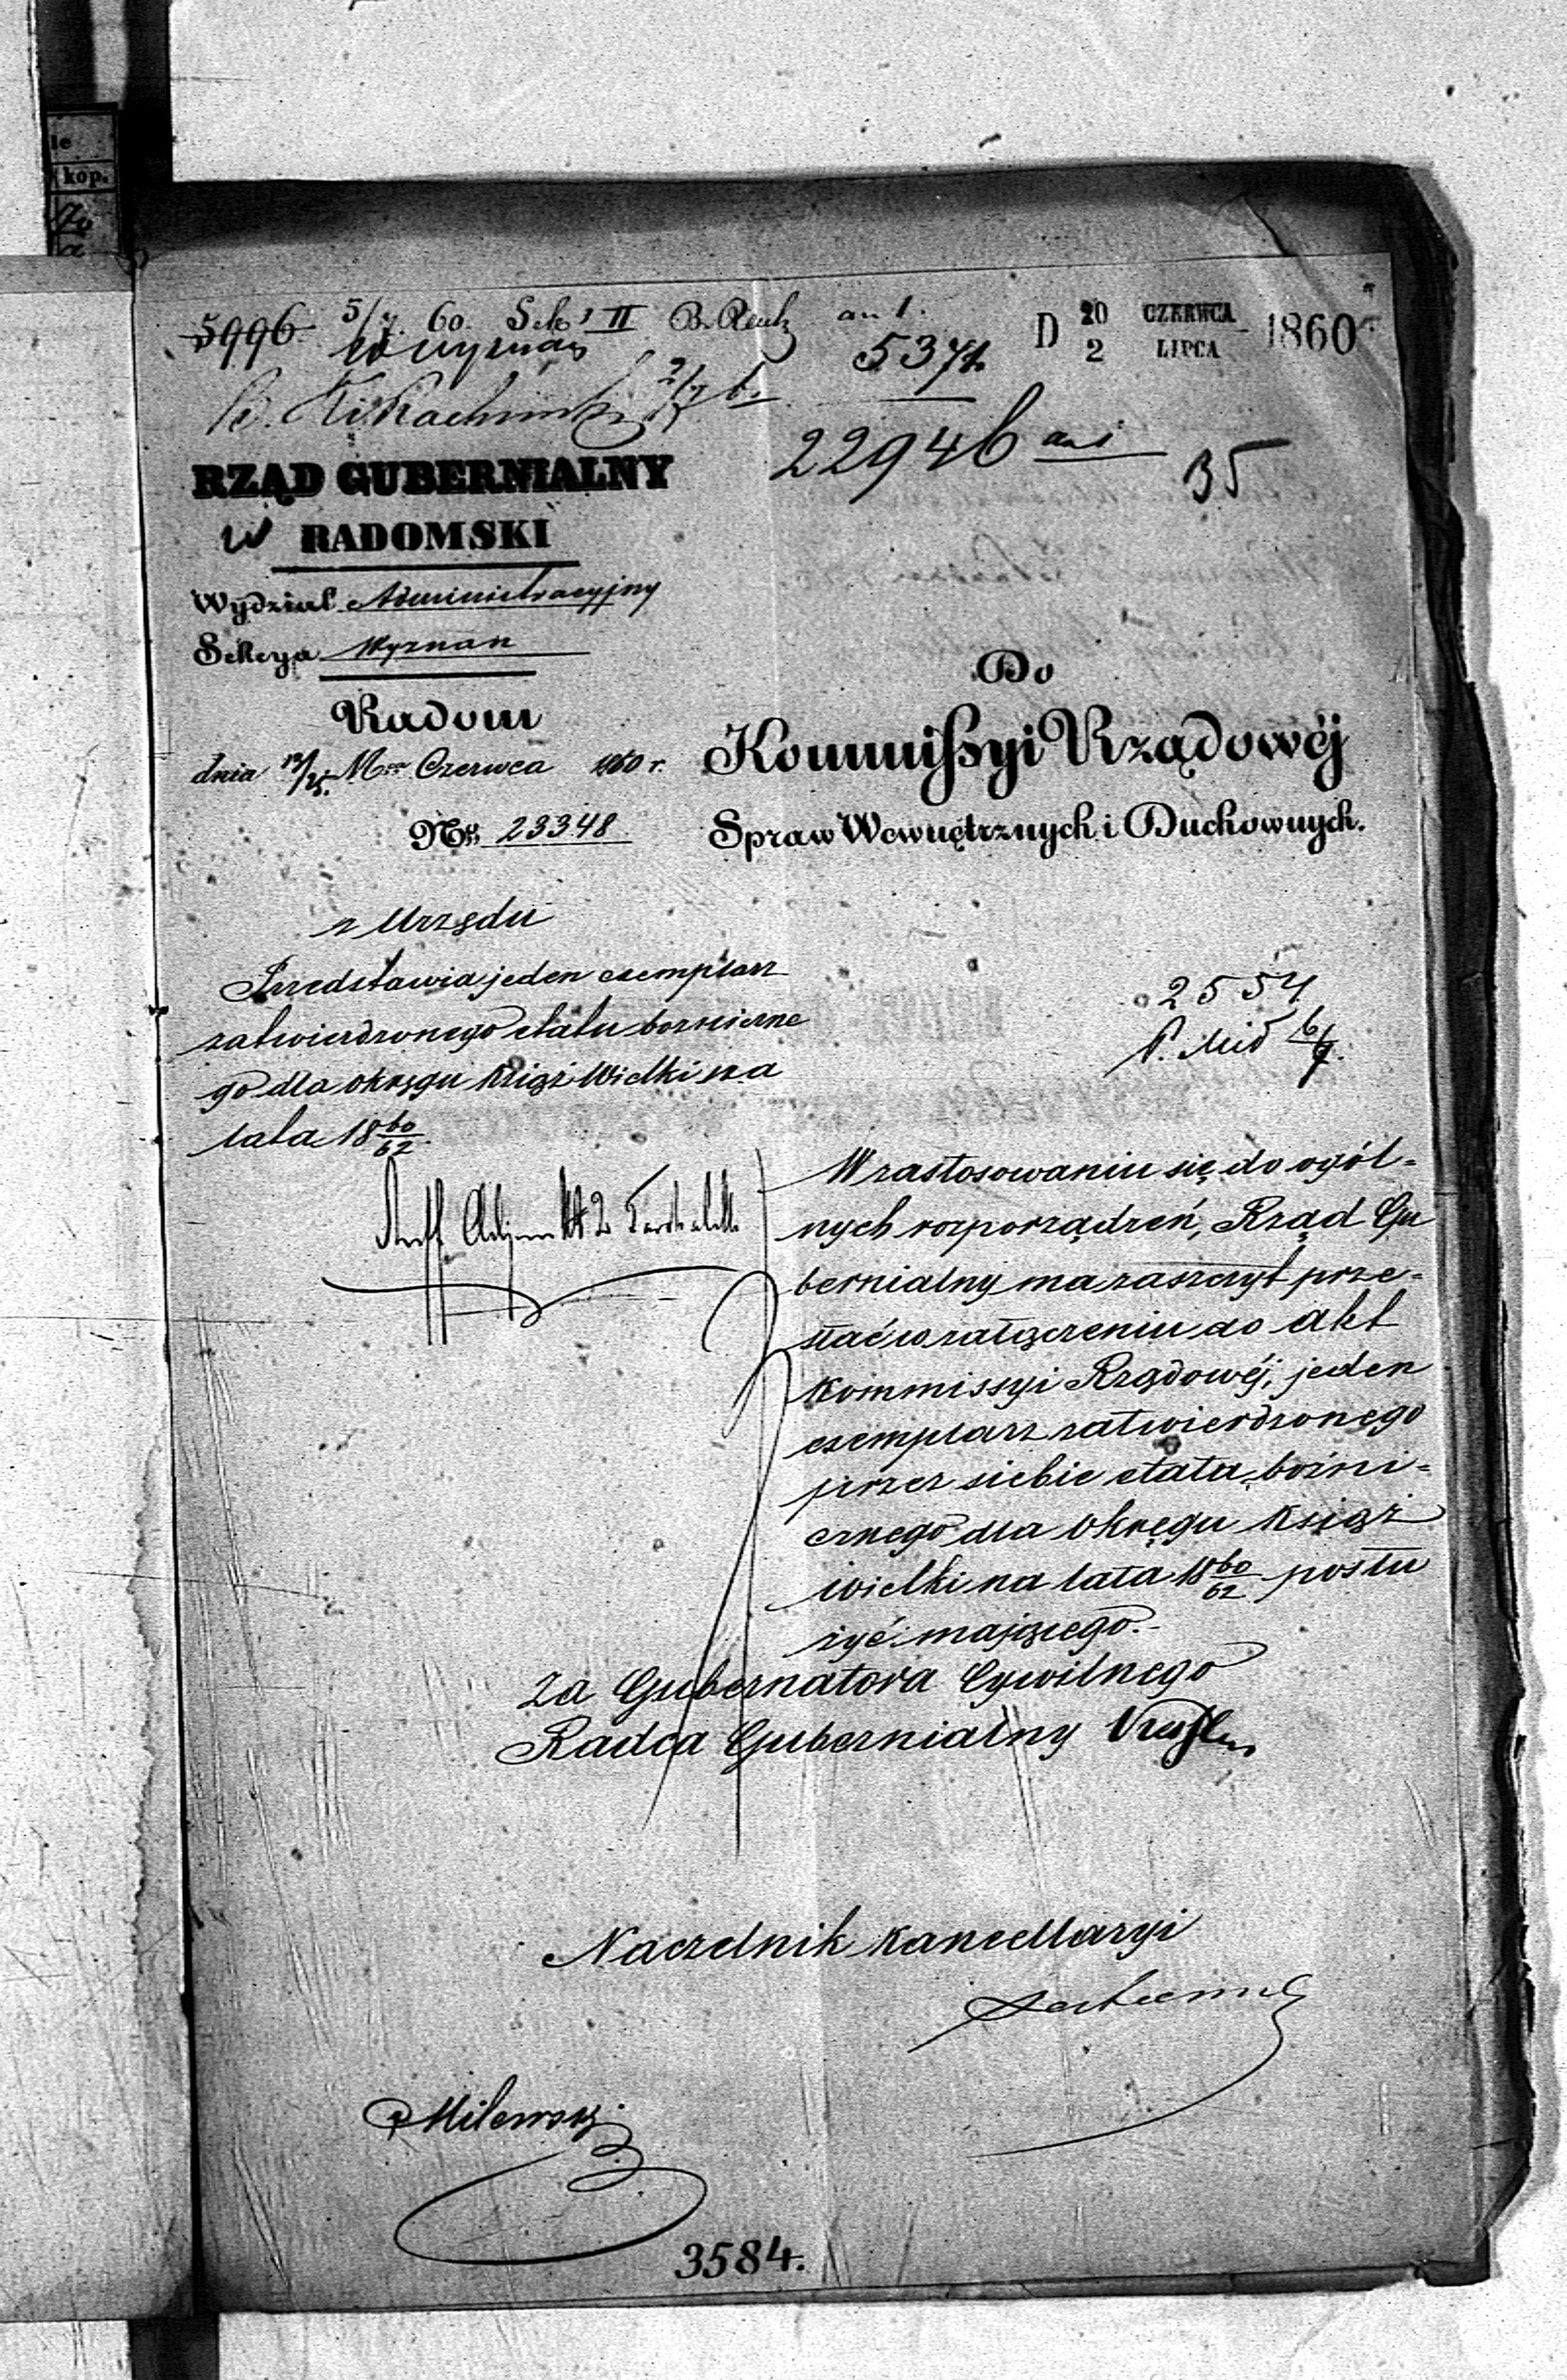 le
kop.
5996. 5/7. 60. Sek. II an 1.
w wyznań 5371.
D 20 CZERWCA 1860
2 LIPCA
22946 an 1 35
RZĄD GUBERNIALNY
w RADOMSKI
Wydział Administracyjny
Sekcya Wyznan
Radom
dnia 13/25 Mca Czerwca 1860 r.
Nr 23348
Do
Kommissyi Rządowéj
Spraw Wewnętrznych i Duchownych.
z Urzędu
Przedstawia jeden exemplarz
zatwierdzonego etatu bożniczne
go dla okręgu Książ Wielki na
lata 18 60/62.
2554
6/7.
W zastosowaniu się do ogól=
nych rozporządzeń, Rząd Gu
bernialny ma zaszczyt prze=
słać w załączeniu do akt
Kommissyi Rządowéj, jeden
exemplarz zatwierdzonego
przez siebie etatu bożni=
cznego dla Okręgu Książ
wielki na lata 18 60/62 posłu
żyć mającego.-
Za Gubernatora Cywilnego
Radca Gubernialny
Naczelnik Kancellaryi
Milewski
3584.